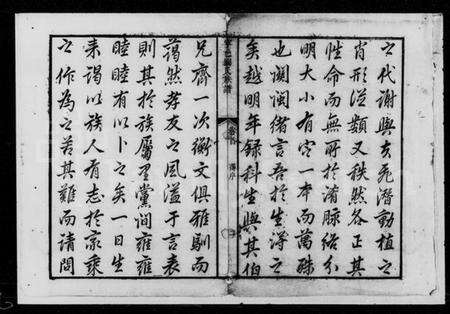 之代謝與夫飛潛動植之
肖形從類又秩然各正其
性命而無所於淆脈絡分
明大小有定一本而萬殊
也関閩緒言吾於生得之
矣越明年録科生與其伯
卷首
譜序
兄齋一次衡文俱雅馴而
藹然孝友之風溢于言表
則其於族屬里黨間雍雍
睦睦有以卜之矣一日生
来謁以族人有志於家乘
之作為之苦其難而請問